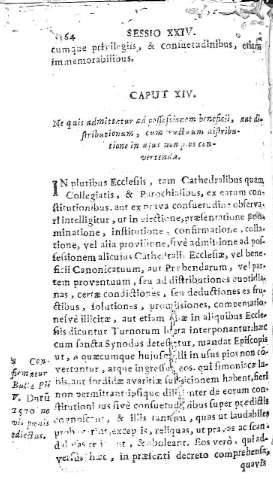 SESSIO XXIV.
cumque privilegiis, & consuetudinibus, etiam
immemorabilibus.
CAPUT XIV.
Ne quis admittatur ad possessionem beneficii, aut di-
stributionum, cum fructuum distribu-
tione in usus non pios con-
vertenda.
IN pluribus Ecclesiis, tam Cathedralibus quam
Collegiatis, & Parochialibus, ex earum con-
stitutionibus, aut ex prava consuetudine observa-
ri intelligitur, ut in electione, præsentatione
minatione, institutione, confirmatione, colla-
tione, vel alia provisione, sive admissione ad pos-
sessionem alicujus Cathedrali Ecclesiæ, vel bene-
ficii Canonicatuum, aut Præbendarum, vel par-
tem proventuum, seu ad distributiones quotidia-
nas, certæ condictiones, seu deductiones ex fru-
ctibus, solutiones, promissiones, compensatio-
nesve illicitæ, aut etiam quæ in aliquibus Eccle-
siis dicuntur Turnorum lucra interponantur. hæc
cum sancta Synodus detestetur, mandat Episcopis
ut, a quæcumque hujusmodi in usus pios non co
vertantur, atque ingressus eos, qui simoniacæ la-
bis aut sordidæ avaritiæ suspicionem habent, fieri
non permittant ipsique diligenter de eorum con-
stitutionibus sive consuetudinibus super prædictis
cognoscant, & illis tantum, quas ut laudabiles
probaverint, exceptis, reliquas, ut pravas ac scan-
dalosas rejiciant, & aboleant. Eos vero, qui ad-
versus hæc, in præsenti decreto comprehensa,
quavis
Con-
firmatur
Bulla Pii
V. Datū
1570